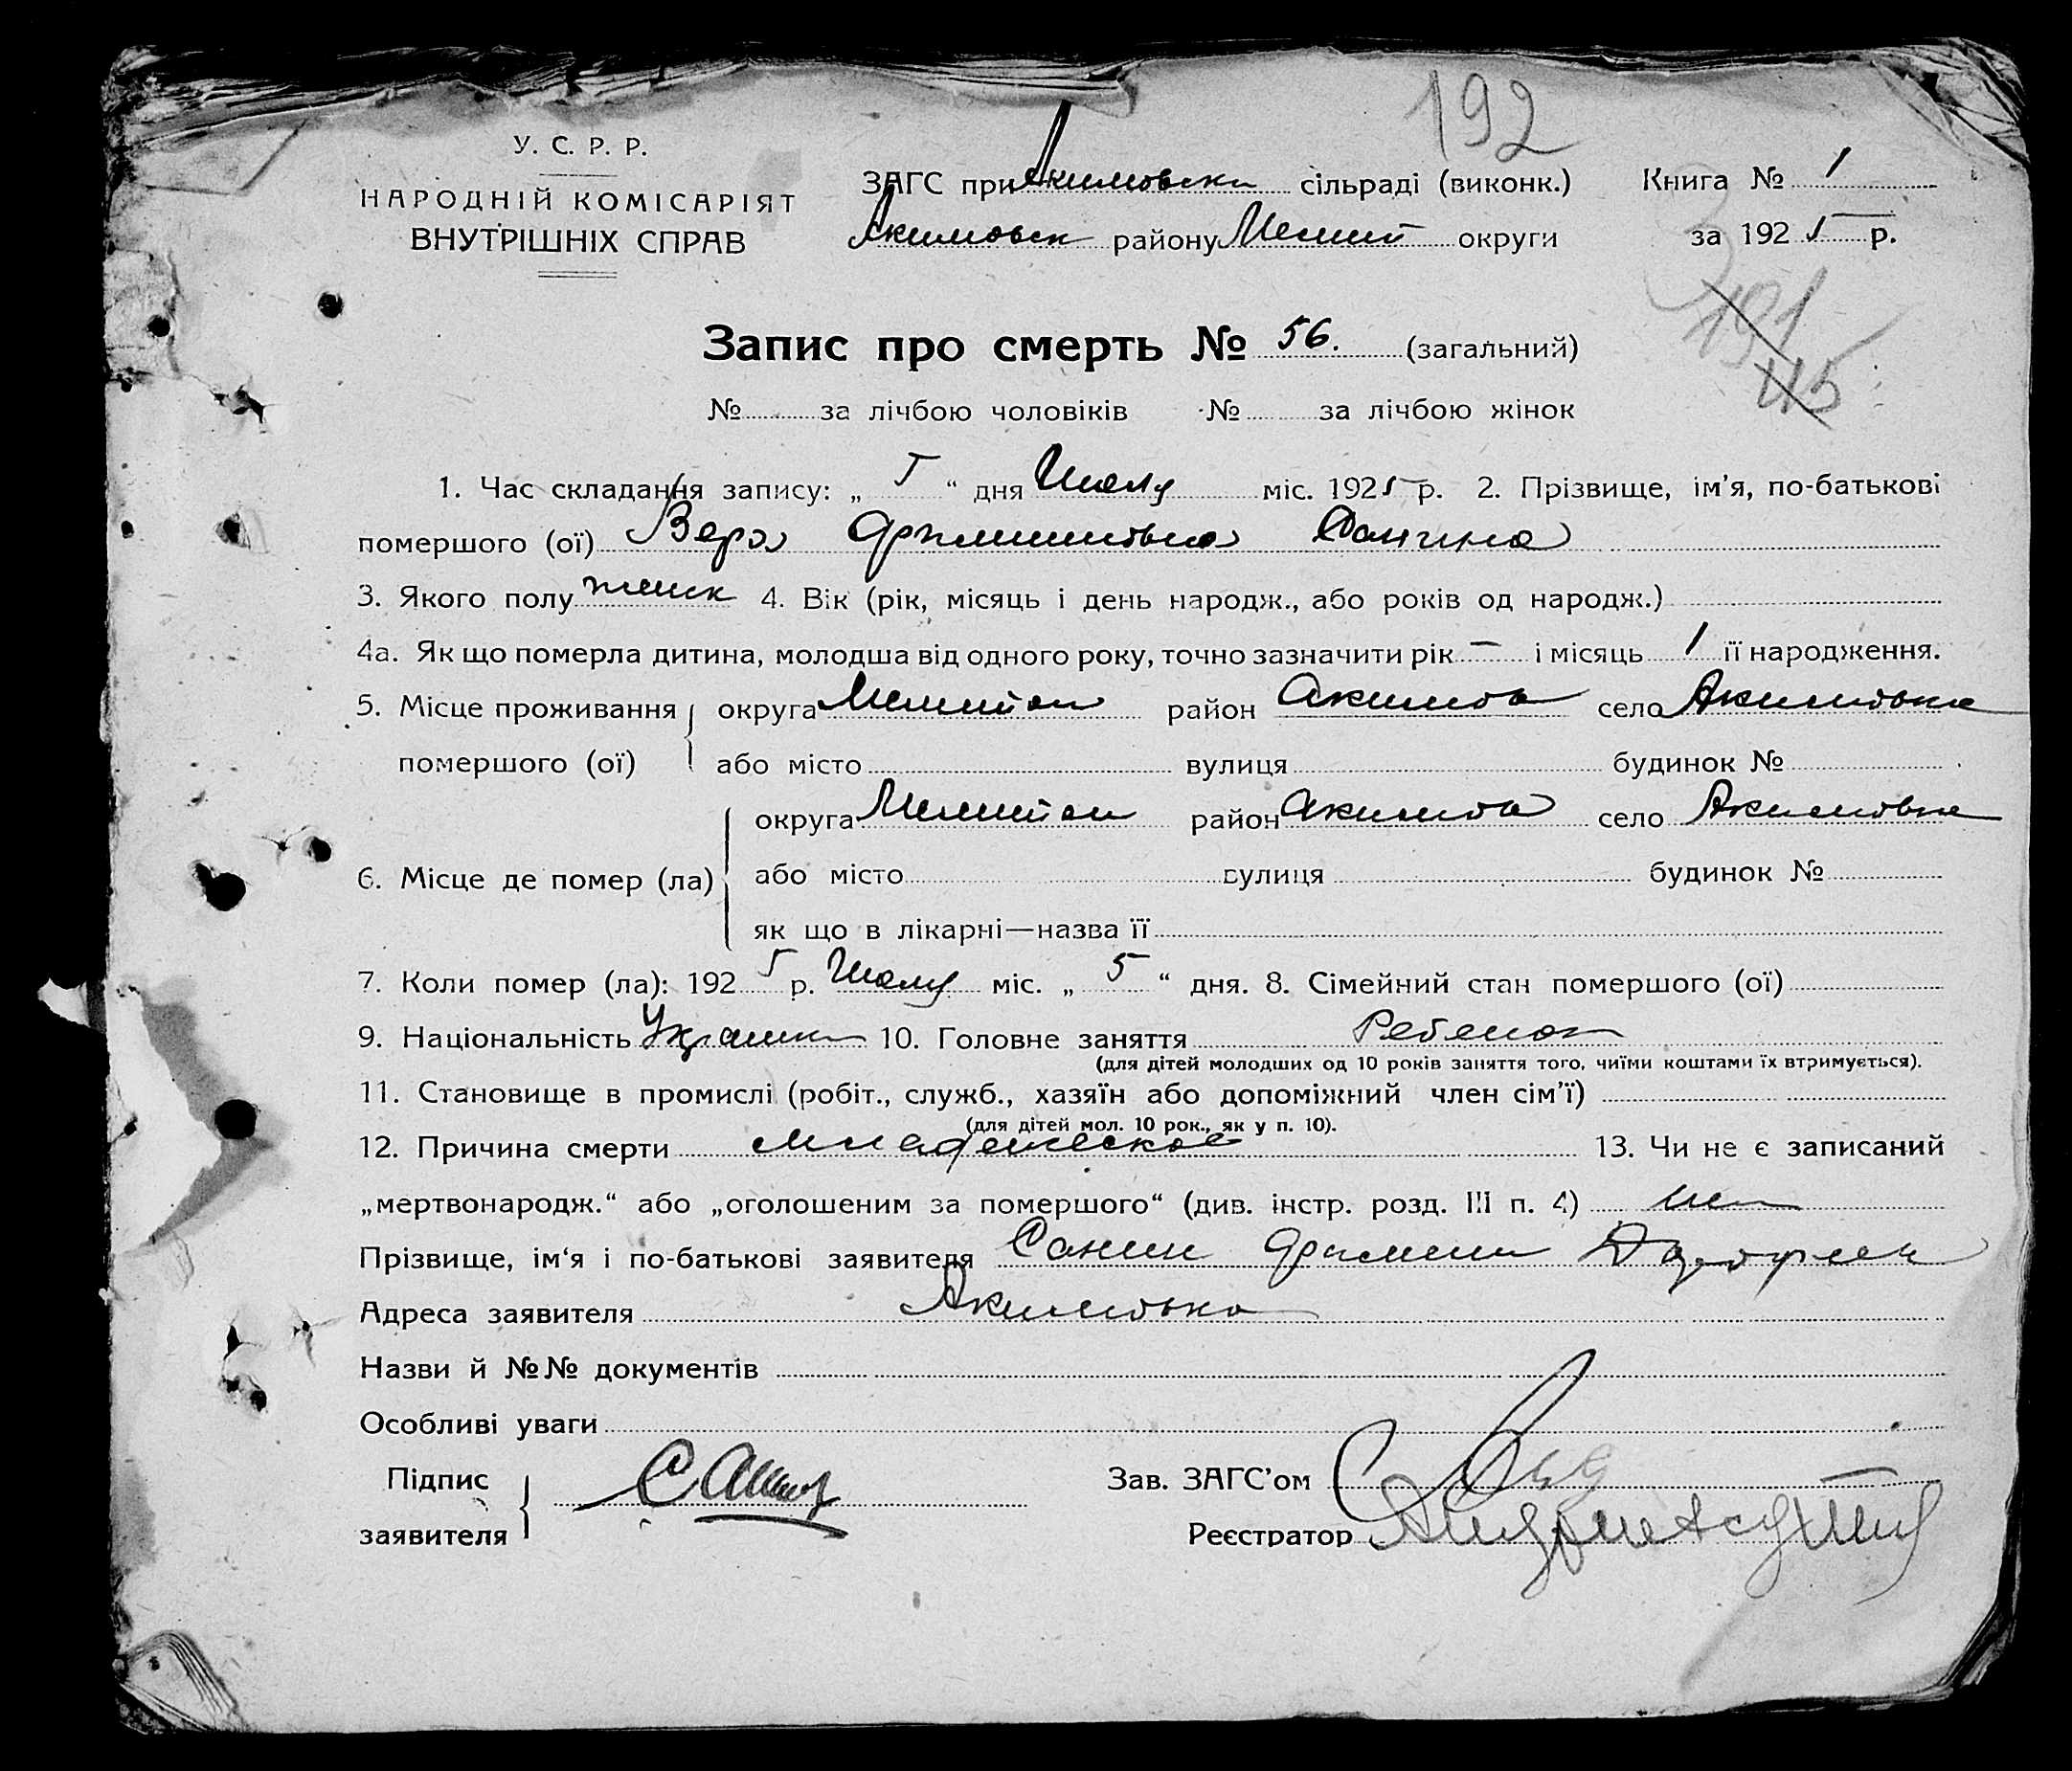 192
У. С. Р. Р.
НАРОДНІЙ КОМІСАРІЯТ
ВНУТРІШНІХ СПРАВ
ЗАГС при Акимовски сільраді (виконк.)
Акимовск району Мелит округи
Книга № 1
за 1925 р.
191
115
Запис про смерть № 56. (загальний)
№ за лічбою чоловіків № за лічбою жінок
1. Час складання запису: „ 5 “ дня Июля міс. 1925 р. 2. Прізвище, ім’я, по-батькові
помершого (ої) Вера
3. Якого полу женск 4. Вік (рік, місяць і день народж., або років од народж.)
4а. Як що померла дитина, молодша від одного року, точно зазначити рік — і місяць 1 її народження.
5. Місце проживання округа Мелитоп район Акимов село Акимовка
помершого (ої) або місто вулиця будинок №
округа Мелитоп район Акимов село Акимовка
6. Місце де помер (ла) або місто вулиця будинок №
як що в лікарні—назва її
7. Коли помер (ла): 1925 р. Июля міс. „ 5 “ дня. 8. Сімейний стан помершого (ої)
9. Національність Украин 10. Головне заняття Ребенок
(для дітей молодших од 10 років заняття того, чиїми коштами їх втримується).
11. Становище в промислі (робіт., служб., хазяїн або допоміжний член сім’ї)
(для дітей мол. 10 рок., як у п. 10).
12. Причина смерти младенческое 13. Чи не є записаний
„мертвонародж.“ або „оголошеним за помершого“ (див. інстр. розд. III п. 4) нет
Прізвище, ім‘я і по-батькові заявителя Санин
Адреса заявителя Акимовка
Назви й №№ документів
Особливі уваги
Підпис
заявителя
Зав. ЗАГС’ом
Реєстратор